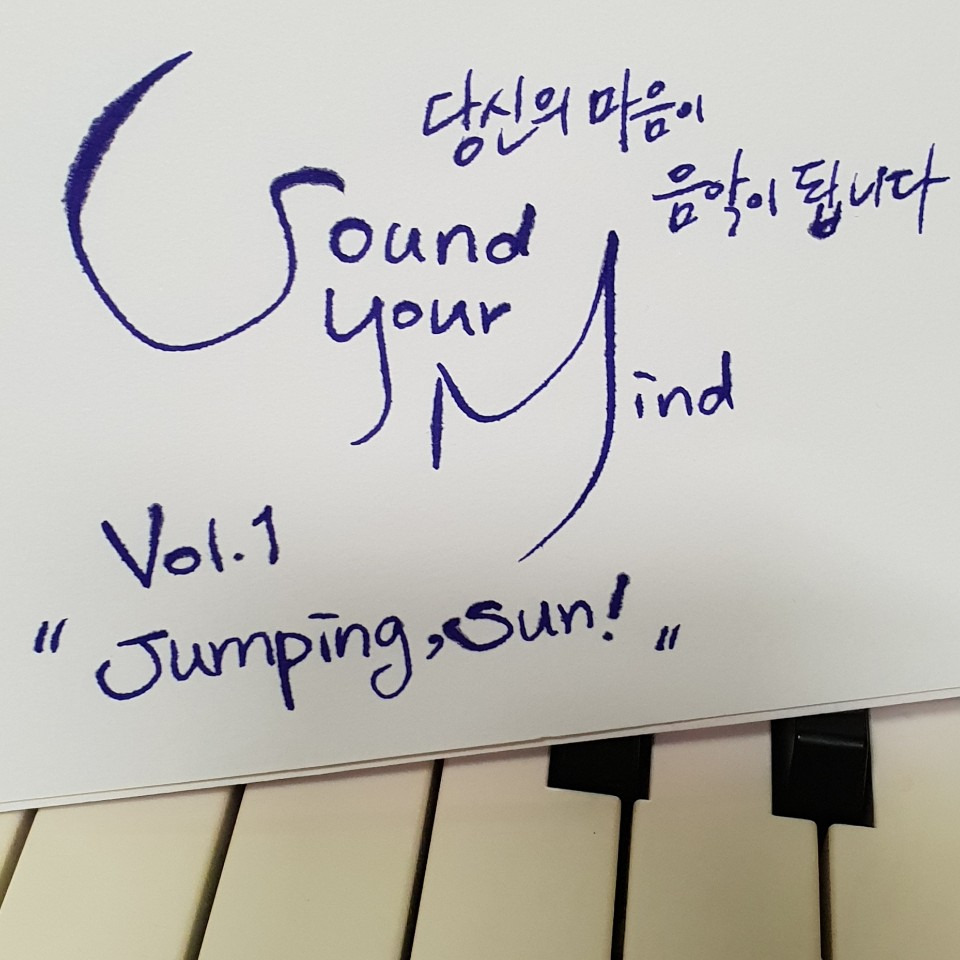 당신의 마음이
음악이 됩니다
Sound
your
Mind
Vol.1
"Jumping, Sun!"